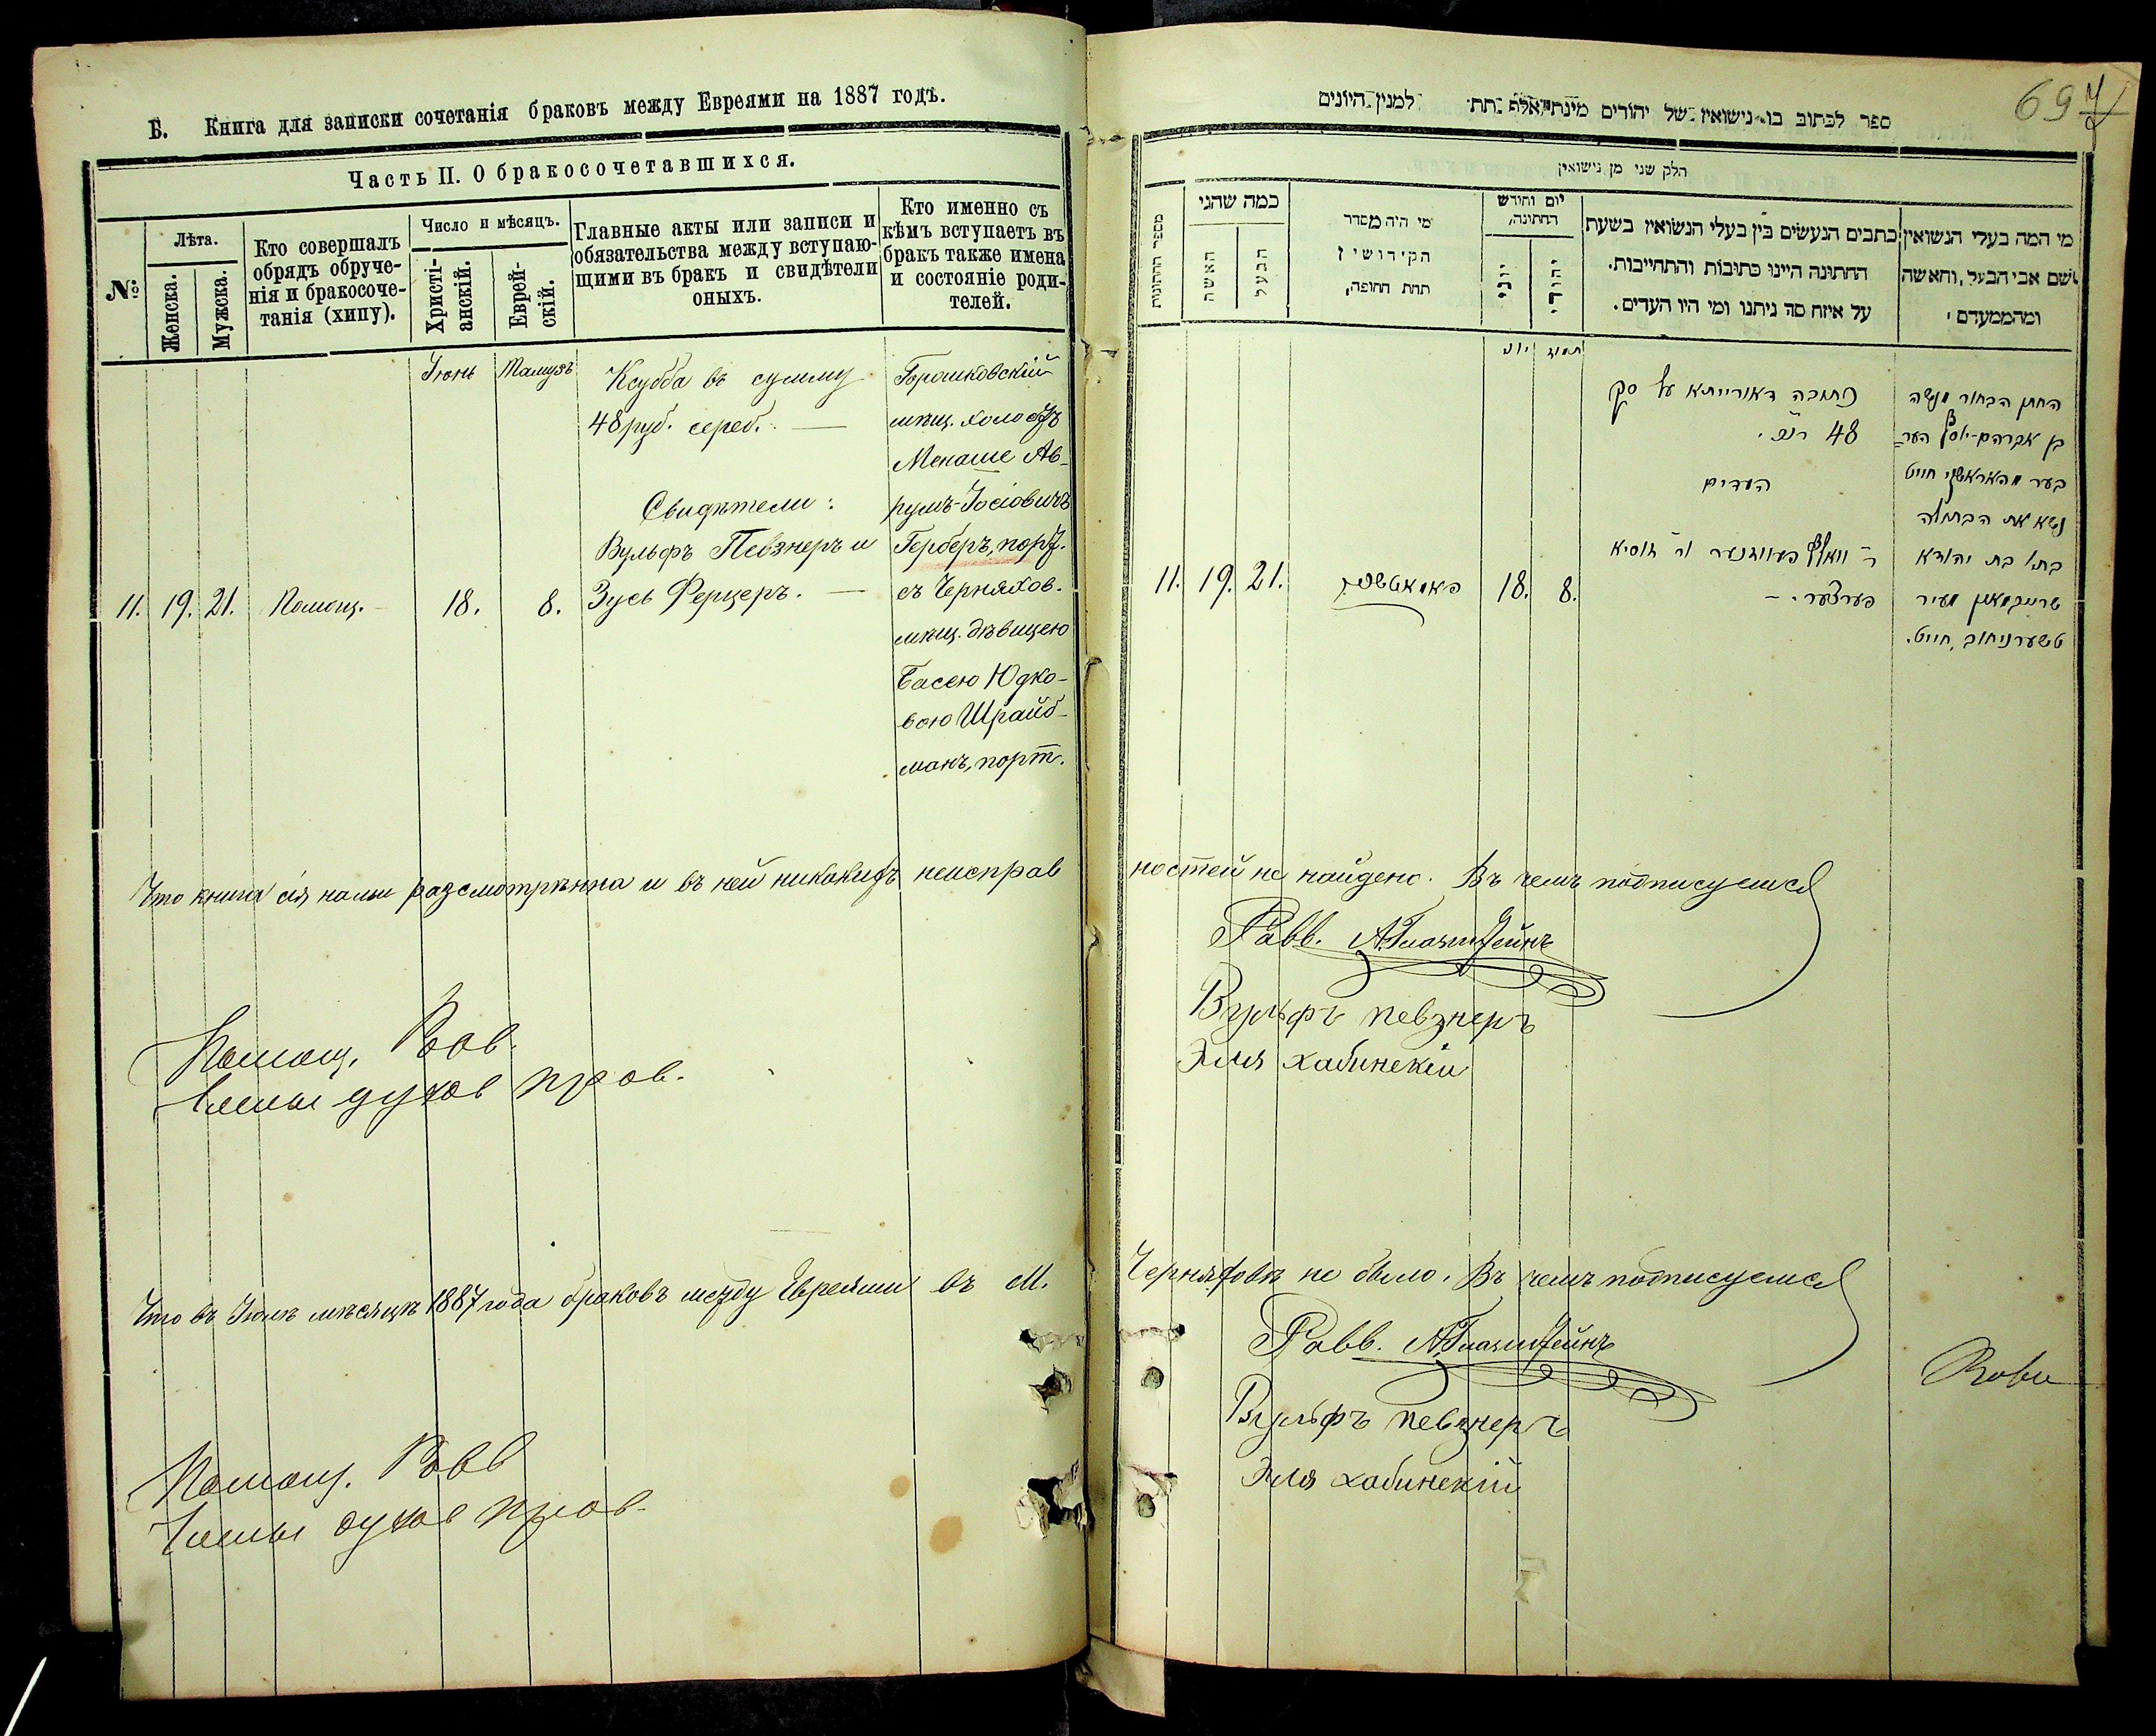 Б. Книга для записки сочетанія браковъ между Евреями на 1887 годъ.
Часть II. О бракосочетавшихся.
№
Лѣта.
Женска.
Мужска.
Кто совершалъ
обрядъ обруче-
нія и бракосоче-
танія (хипу).
Число и мѣсяцъ.
Христі-
анскій.
Еврей-
скій.
Главные акты или записи и
обязательства между вступаю-
щими въ бракъ и свидѣтели
оныхъ.
Кто именно съ
кѣмъ вступаетъ въ
бракъ также имена
и состояніе роди-
телей.
Іюнь
Тамузъ
Ксубба въ сумму
48 руб. сереб.
Свидѣтели:
Вульфъ Певзнеръ и
Зусь Ферцеръ.
Горошковскій
мѣщ. холостъ
Менаше Ав-
румъ-Іосіовичъ
Герберъ, порт.
съ Черняхов.
мѣщ. дѣвицею
Басею Юдко-
вою Шрайб-
манъ, порт.
11. 19. 21. Помощ. 18. 8.
Что книга сія нами разсмотрѣнна и въ ней никакихъ неисправ
Помощ. Рав.
Члены духов прав.
Что въ Іюлѣ мѣсяцѣ 1887 года браковъ между Евреями въ М.
Помощ. Равв
Члены духов прав.
69
ספר לכתוב בו נישואין של יהודים מינת אלף תת למנין היונים
חלק שני מן נישואין
מספר החתונות
כמה שהגי
האשה
הבעל
מי היה מסדר
הקידושין
תחת החופה,
יום וחודש
החתונה,
יוני
יהודי
כתבים הנעשים בין בעלי הנשואין בשעת
החתונה היינו כתובות והתחייבות.
על איזה סך ניתנו ומי היו העדים.
מי המה בעלי הנשואין
ושם אבי הבעל, והאשה
ומהממעדם,
יוני
תמוז
כתובה דאורייתא על סך
48
העדים
ר׳ וואלף פעווזנער ור׳ זוסיא
פערצער.
החתן הבחור מנשה
בן אברהם-יוסף הער
בער מהאראשקי חייט
נשא את הבתולה
בתי׳ בת יהודא
שרייבמאן מעיר
טשערניחוב, חייט.
11. 19. 21. 18. 8.
ностей не найдено. Въ чемъ подписуемся
Равв. А. Глазштейнъ
Вульфъ певзнеръ
Эля хабинскій
Черняховѣ не было. Въ чемъ подписуемся
Равв. А. Глазштейнъ
Вульфъ певзнеръ
Эля хабинскій